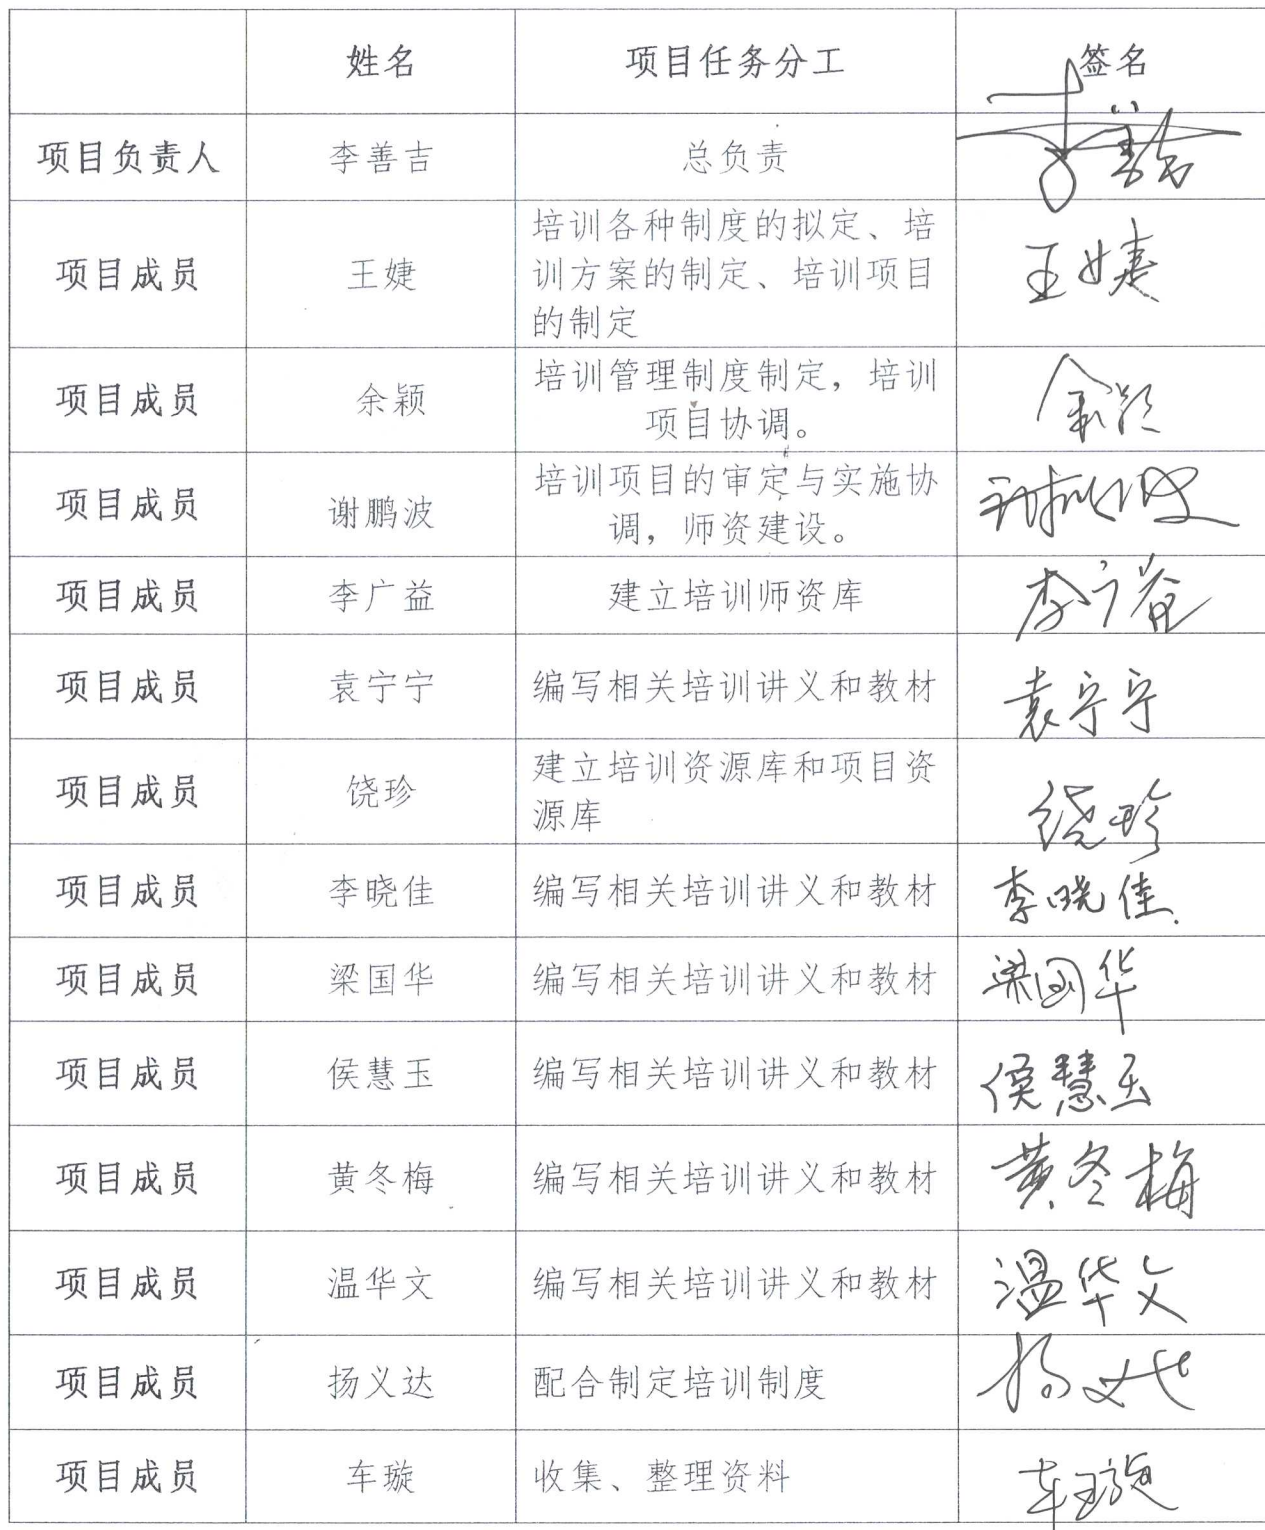 姓名 项目任务分工 签名
项目负责人 李善吉 总负责 李善吉
项目成员 王婕 培训各种制度的拟定、培
训方案的制定、培训项目
的制定 王婕
项目成员 余颖 培训管理制度制定，培训
项目协调。 余颖
项目成员 谢鹏波 培训项目的审定与实施协
调，师资建设。 谢鹏波
项目成员 李广益 建立培训师资库 李广益
项目成员 袁宁宁 编写相关培训讲义和教材 袁宁宁
项目成员 饶珍 建立培训资源库和项目资
源库 饶珍
项目成员 李晓佳 编写相关培训讲义和教材 李晓佳
项目成员 梁国华 编写相关培训讲义和教材 梁国华
项目成员 侯慧玉 编写相关培训讲义和教材 侯慧玉
项目成员 黄冬梅 编写相关培训讲义和教材 黄冬梅
项目成员 温华文 编写相关培训讲义和教材 温华文
项目成员 扬义达 配合制定培训制度 扬义达
项目成员 车璇 收集、整理资料 车璇